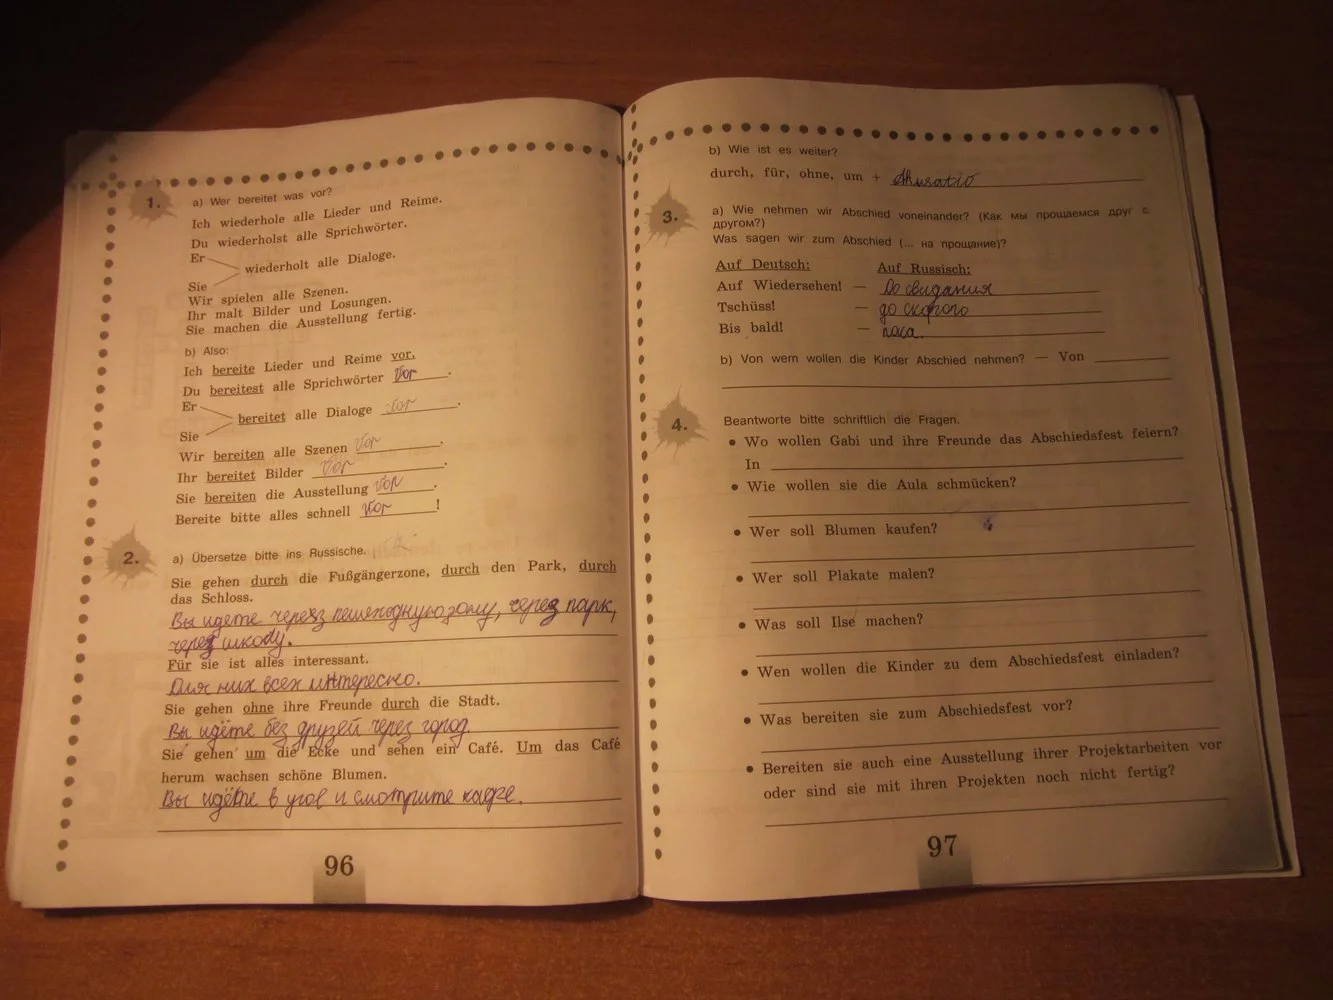 1.
a) Wer bereitet was vor?
Ich wiederhole alle Lieder und Reime.
Du wiederholst alle Sprichwörter.
Er
wiederholt alle Dialoge.
Sie
Wir spielen alle Szenen.
Ihr malt Bilder und Losungen.
Sie machen die Ausstellung fertig.
b) Also:
Ich bereite Lieder und Reime vor.
Du bereitest alle Sprichwörter vor.
Er
bereitet alle Dialoge vor.
Sie
Wir bereiten alle Szenen vor.
Ihr bereitet Bilder vor.
Sie bereiten die Ausstellung vor.
Bereite bitte alles schnell vor!
2.
a) Übersetze bitte ins Russische.
Sie gehen durch die Fußgängerzone, durch den Park, durch
das Schloss.
Вы идете через пешеходную зону, через парк,
через школу.
Für sie ist alles interessant.
Для них всех интересно.
Sie gehen ohne ihre Freunde durch die Stadt.
Вы идёте без друзей через город.
Sie gehen um die Ecke und sehen ein Café. Um das Café
herum wachsen schöne Blumen.
Вы идёте в угол и смотрите кафе.
96
b) Wie ist es weiter?
durch, für, ohne, um +
3.
a) Wie nehmen wir Abschied voneinander? (Как мы прощаемся друг с
другом?)
Was sagen wir zum Abschied (... на прощание)?
Auf Deutsch: Auf Russisch:
Auf Wiedersehen! — До свидания
Tschüss! — до скорого
Bis bald! — пока.
b) Von wem wollen die Kinder Abschied nehmen? — Von
4.
Beantworte bitte schriftlich die Fragen.
• Wo wollen Gabi und ihre Freunde das Abschiedsfest feiern?
In
• Wie wollen sie die Aula schmücken?
• Wer soll Blumen kaufen?
• Wer soll Plakate malen?
• Was soll Ilse machen?
• Wen wollen die Kinder zu dem Abschiedsfest einladen?
• Was bereiten sie zum Abschiedsfest vor?
• Bereiten sie auch eine Ausstellung ihrer Projektarbeiten vor
oder sind sie mit ihren Projekten noch nicht fertig?
97